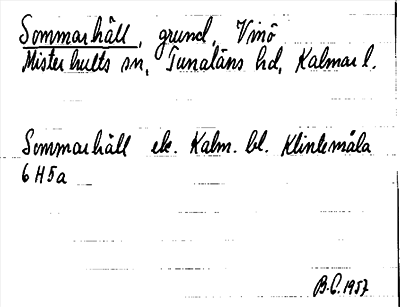 Sommarhäll, grund, Vinö
Misterhults sn, Tunaläns hd, Kalmar l.
Sommarhäll ek. Kalm. bl. Klintemåla
6 H 5 a
B.C. 1957